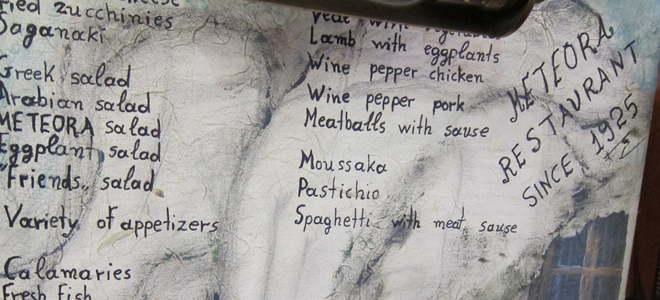 Fied zucchinies
Saganaki
Greek salad
Arabian salad
METEORA salad
Eggplant salad
"Friends" salad
Variety of appetizers
Calamaries
Fresh Fish
Veal with vegetables
Lamb with eggplants
Wine pepper chicken
Wine pepper pork
Meatballs with sause
Moussaka
Pastichio
Spaghetti with meat sause
METEORA
RESTAURANT
SINCE 1925